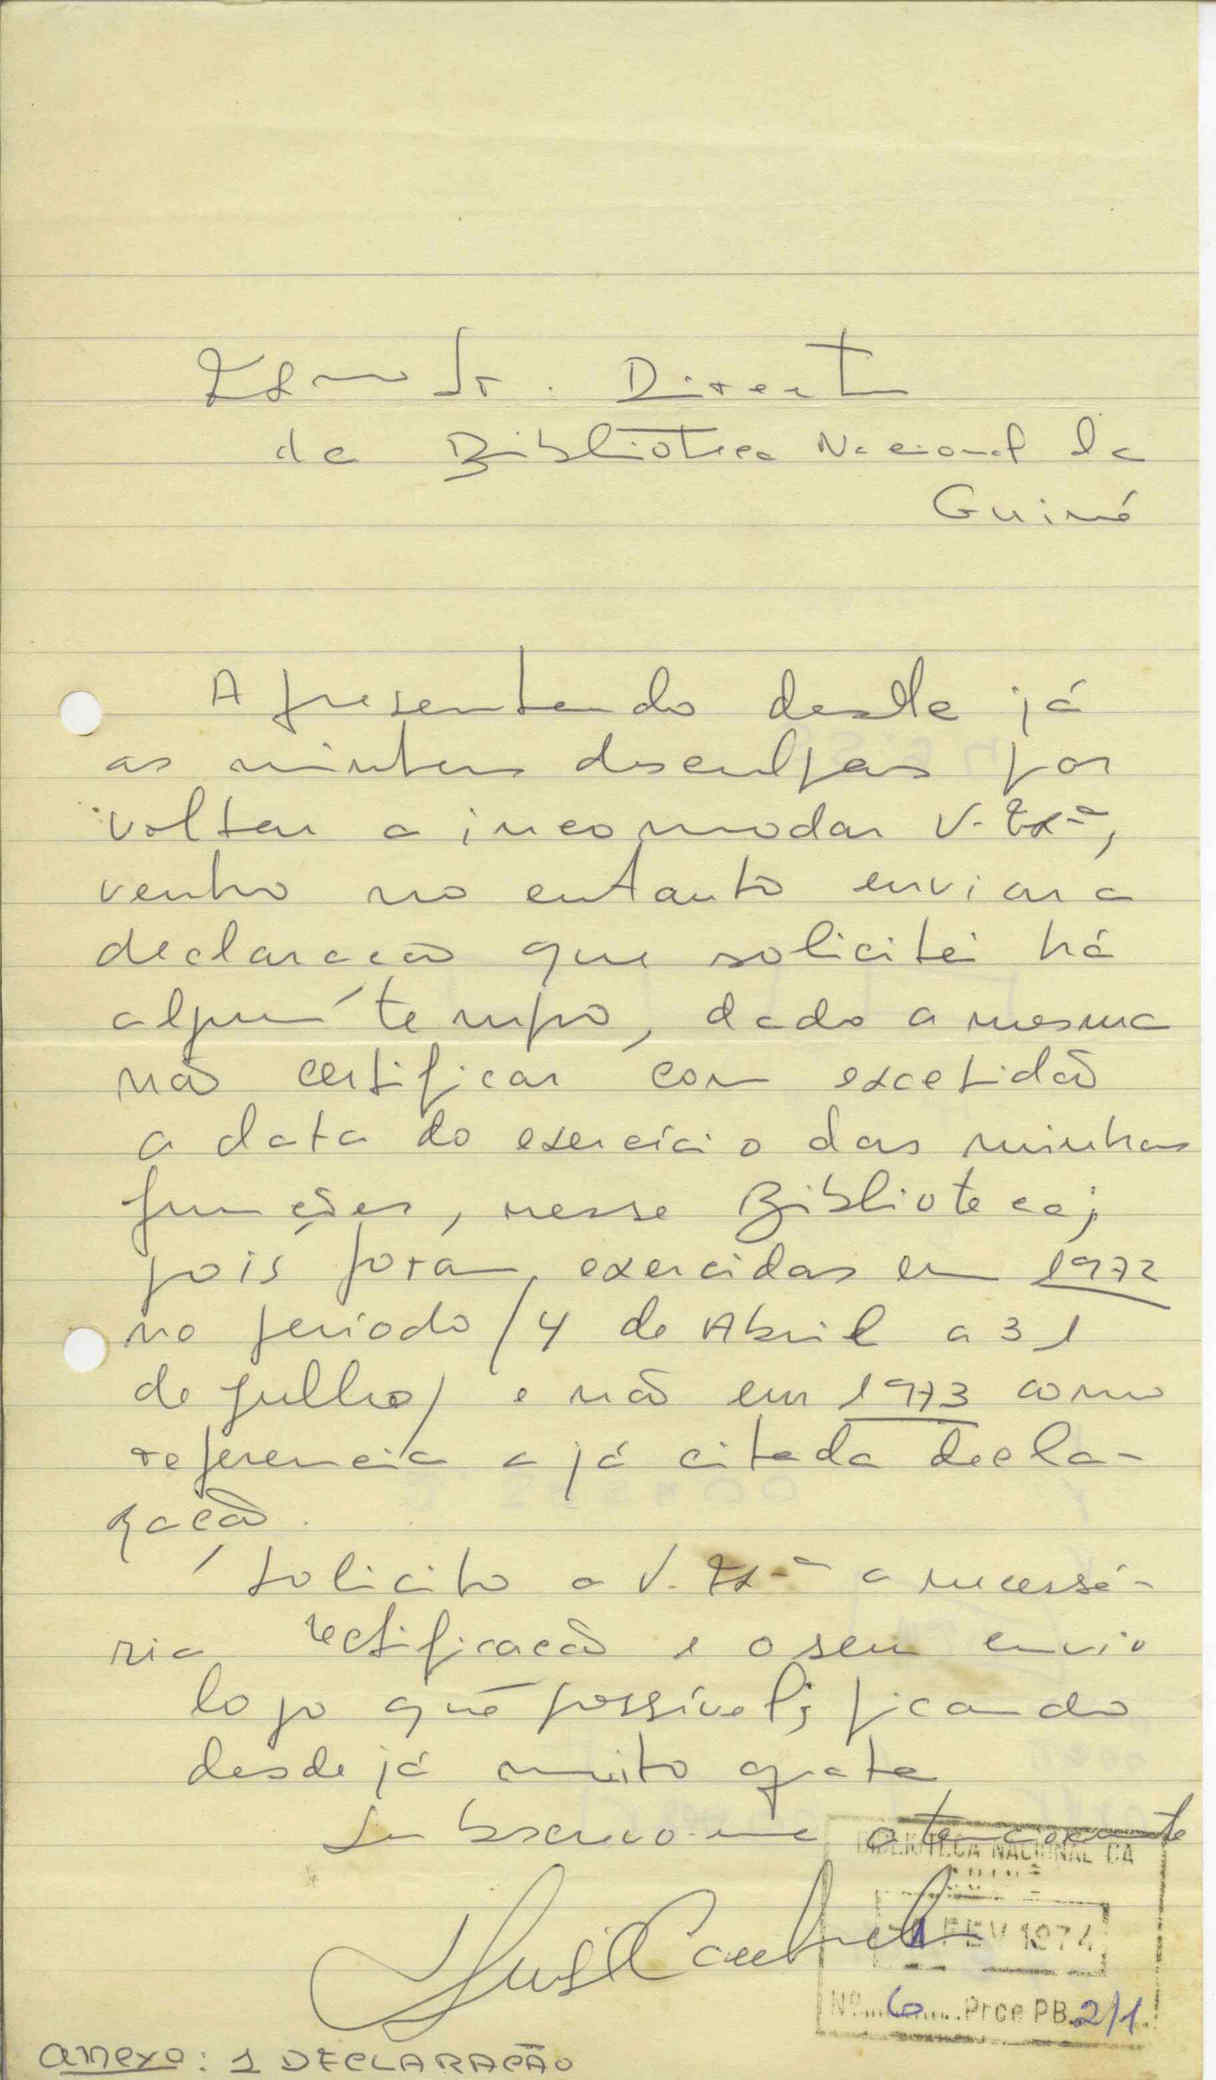 Exmo Sr. Director
da Biblioteca Nacional da
Guiné
Apresentando desde já
as minhas desculpas por
voltar a incomodar V. Exª,
venho no entanto enviar a
declaração que solicitei há
algum tempo, dado a mesma
não certificar com exactidão
a data do exercício das minhas
funções, nessa Biblioteca;
pois foram, exercidas em 1972
no período /4 de Abril a 31
de Julho/ e não em 1973 como
referencia a já citada decla-
ração.
Solicito a V. Exª a necessá-
ria rectificação e o seu envio
logo que possível; ficando
desde já muito grata
Subscrevo-me atenciosamente
BIBLIOTECA NACIONAL DA
GUINÉ
1 FEV 1974
Nº 6 Prce PB 2/1
anexo: 1 DECLARAÇÃO